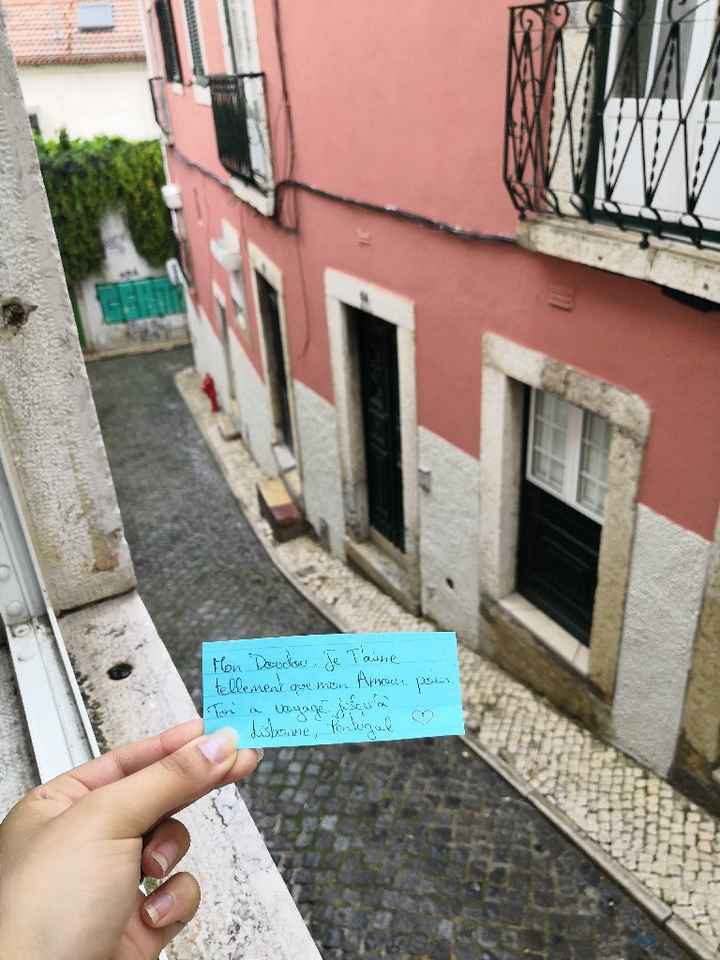 Mon Doudou. Je T'aime
tellement que mon Amour pour
Toi a voyagé jusqu'à
Lisbonne, Portugal